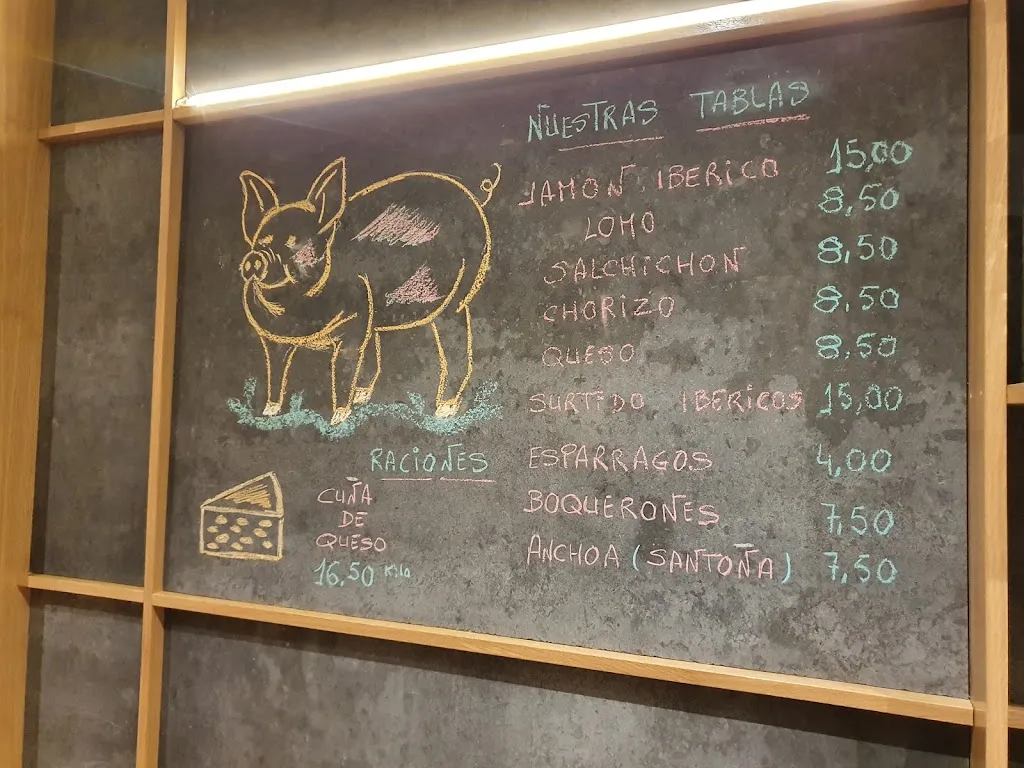 ÑUESTRAS TABLAS
JAMON IBERICO 15,00
LOMO 8,50
SALCHICHON 8,50
CHORIZO 8,50
QUESO 8,50
SURTIDO IBERICOS 15,00
RACIONES
ESPARRAGOS 4,00
BOQUERONES 7,50
ANCHOA (SANTOÑA) 7,50
CUÑA
DE
QUESO
16,50 Kilo